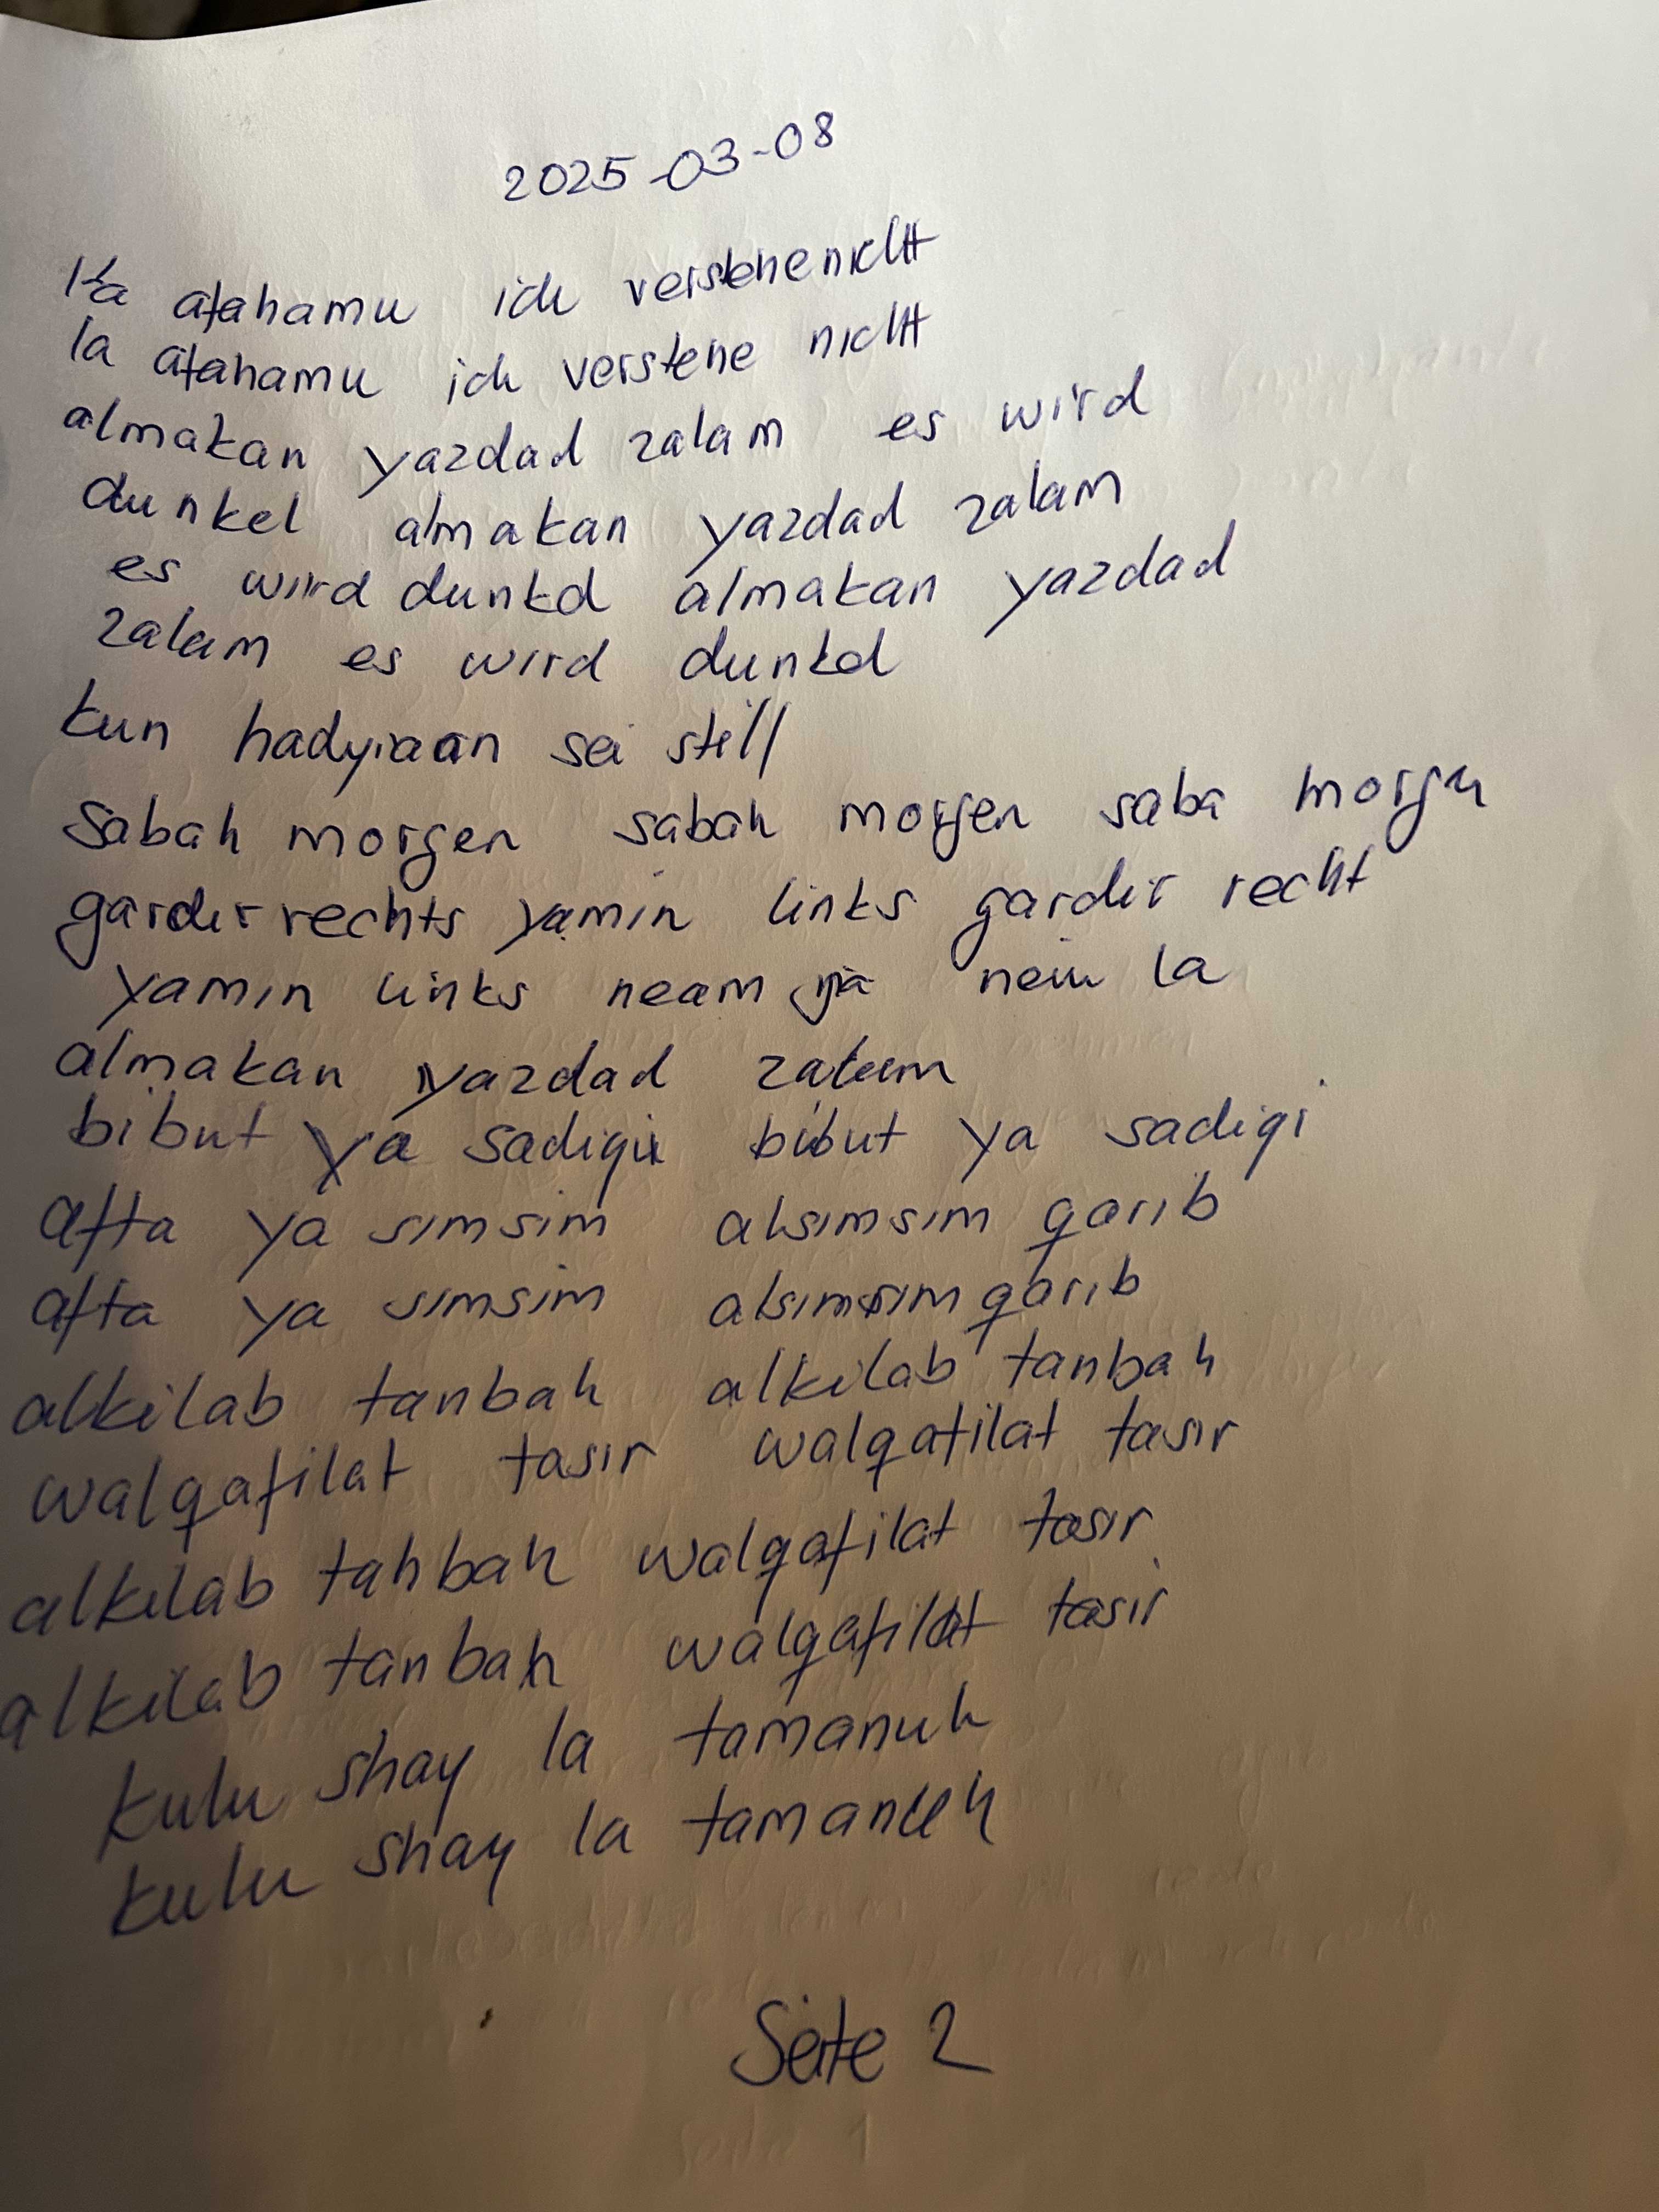 2025-03-08
la atahamu ich verstehe nicht
la atahamu ich verstehe nicht
almakan yazdad zalam es wird
dunkel almakan yazdad zalam
es wird dunkel almakan yazdad
zalam es wird dunkel
kun hadyiaan sei still
sabah morgen sabah morgen saba morgen
gardir rechts yamin links gardir recht
yamin links neam ja nein la
almakan yazdad zalem
bibut ya sadiqi bibut ya sadiqi
afta ya simsim alsimsim garib
afta ya simsim alsimsim garib
alkilab tanbah alkilab tanbah
walgafilat tasir walgafilat tasir
alkilab tanbah walgafilat tasir
alkilab tanbah walgafilat tasir
kulu shay la tamanuh
kulu shay la tamanuh
Seite 2